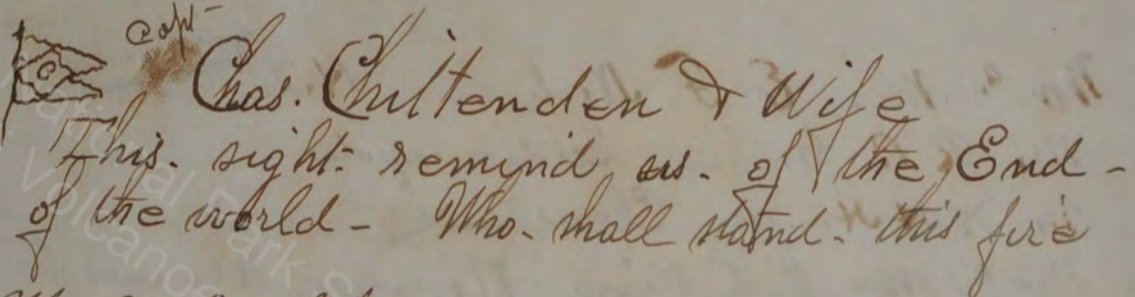 Capt
C
Chas. Chittenden & Wife
This. sight. remind us. of the End -
of the world - Who. shall stand. this fire